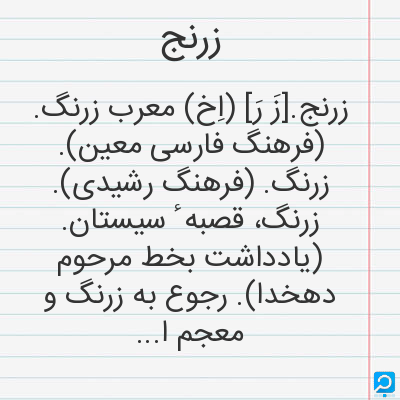 زرنج
زرنج.[زَ رَ] (اِخ) معرب زرنگ.
(فرهنگ فارسی معین).
زرنگ. (فرهنگ رشیدی).
زرنگ، قصبه ٔ سیستان.
(یادداشت بخط مرحوم
دهخدا). رجوع به زرنگ و
معجم ا...